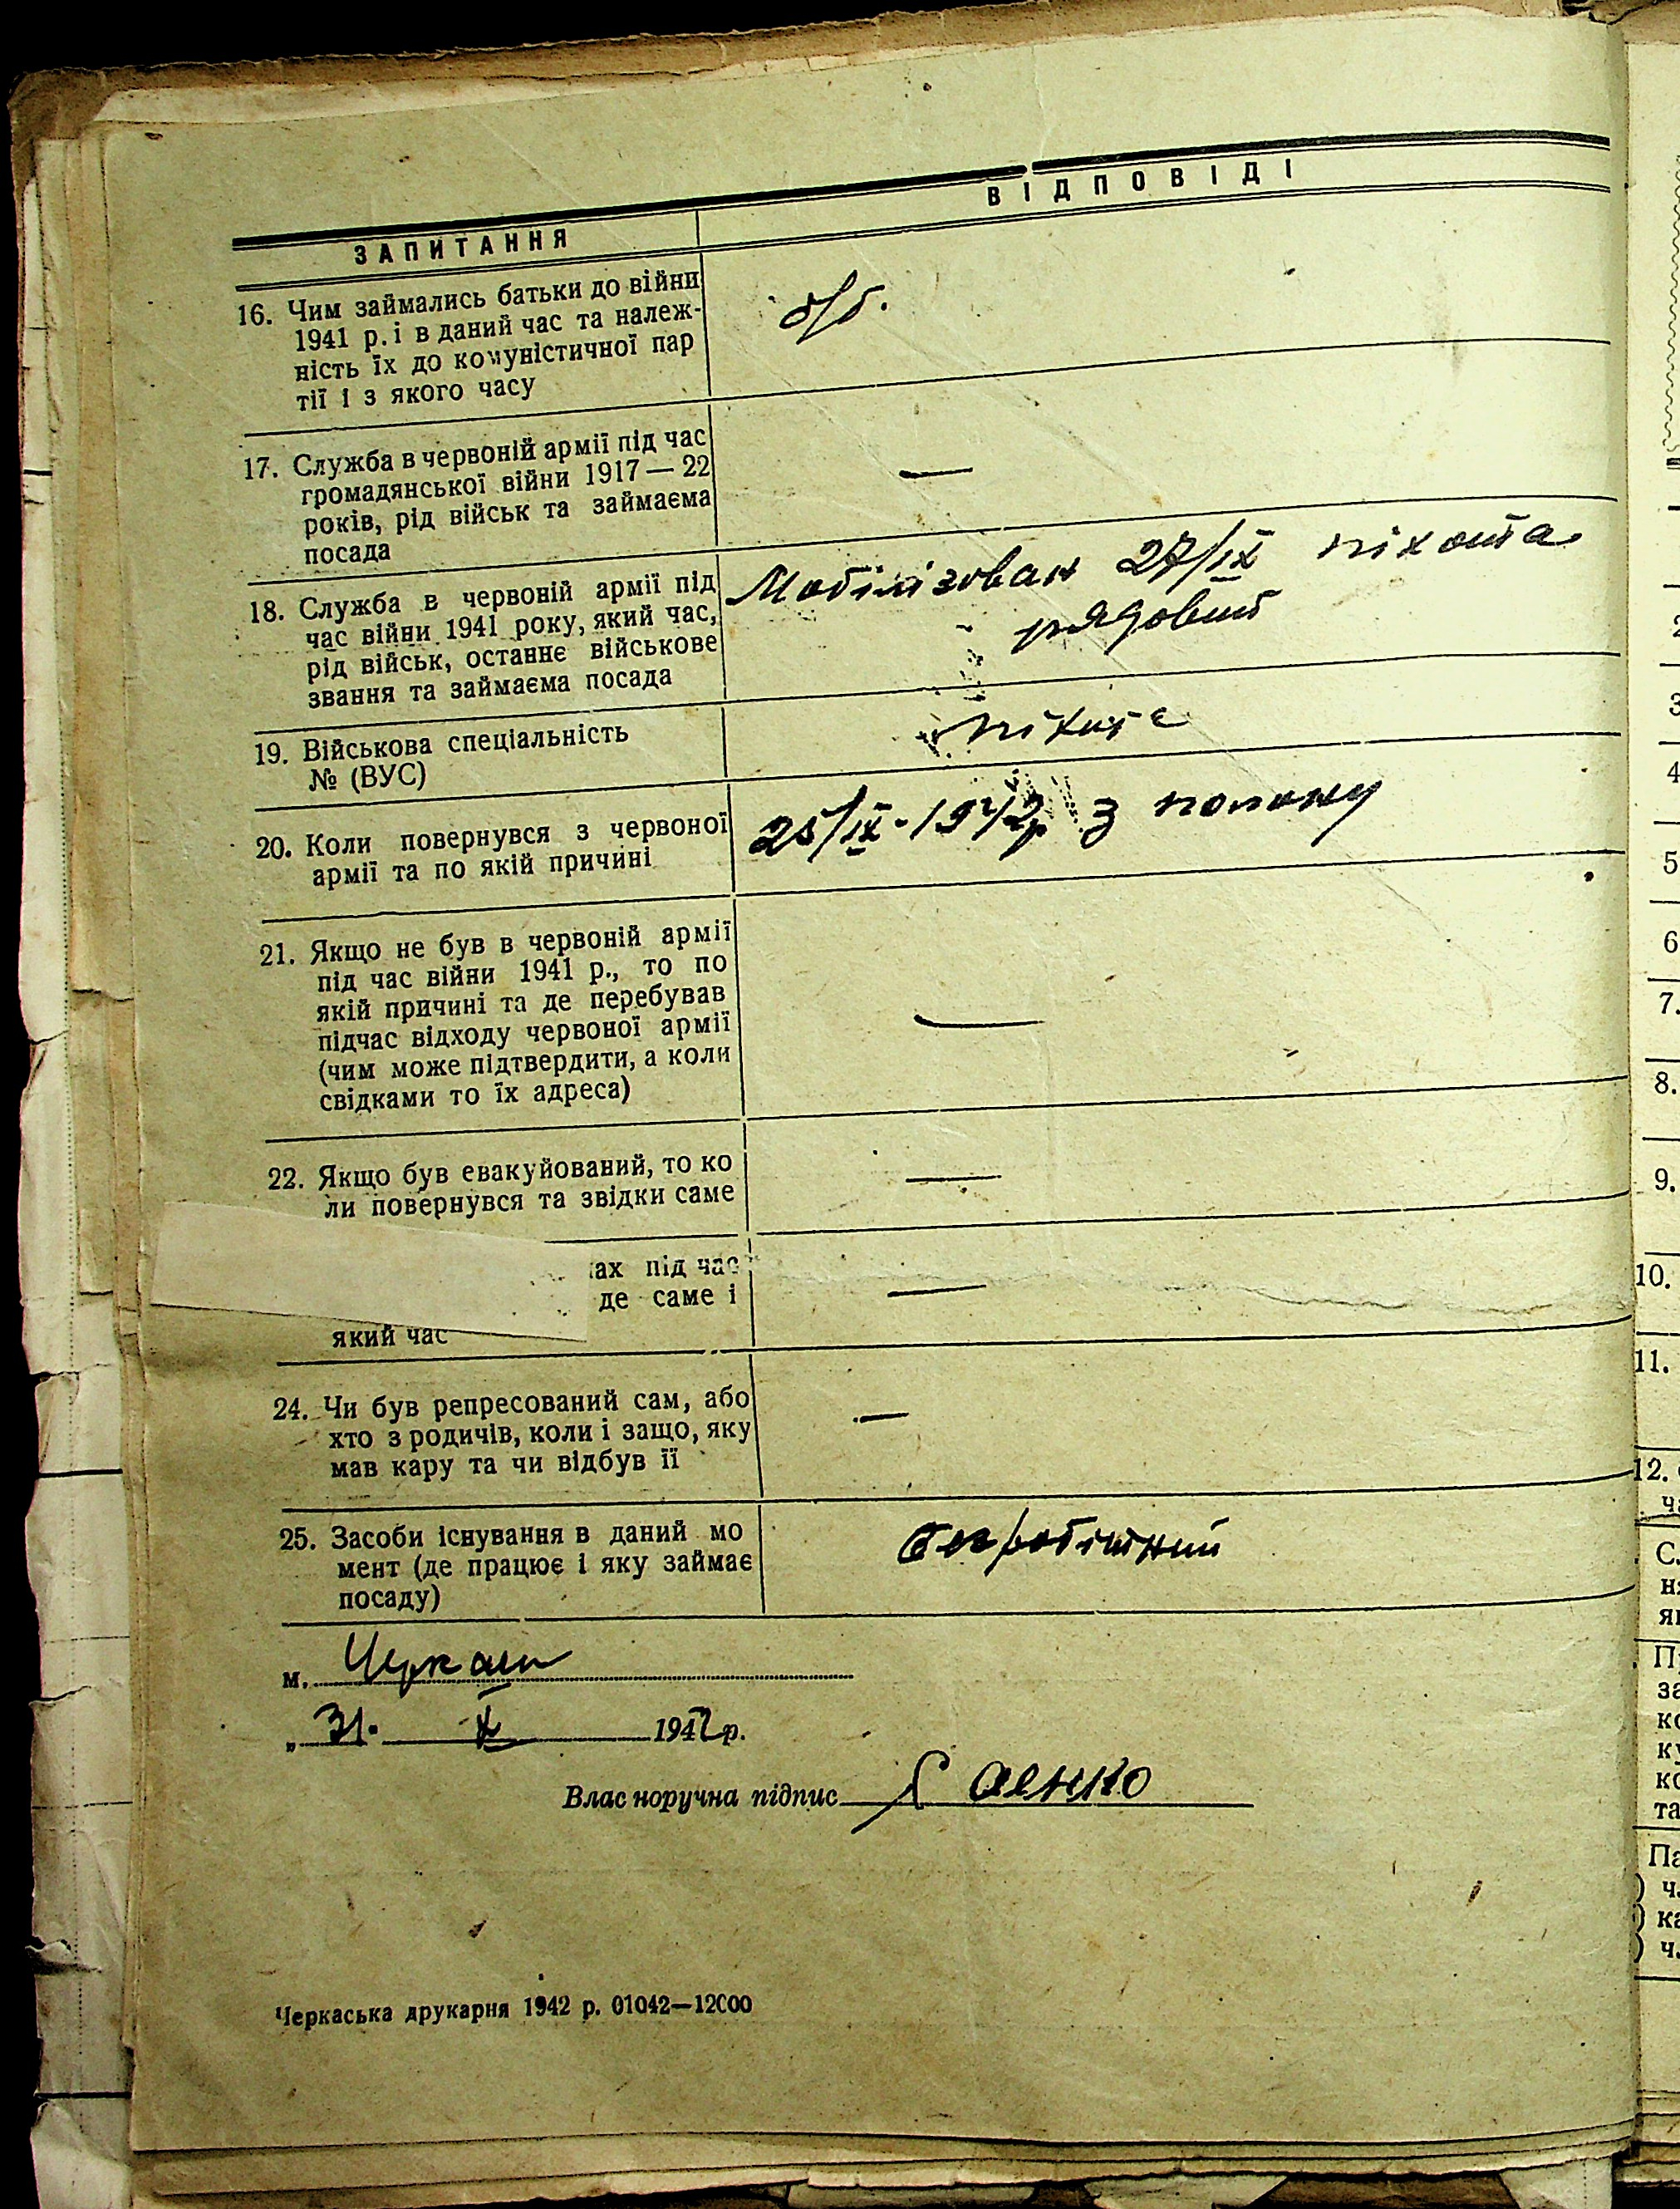 ЗАПИТАННЯ
ВІДПОВІДІ
16. Чим займались батьки до війни
1941 р. і в даний час та належ-
ність їх до комуністичної пар
тії і з якого часу
б/п.
17. Служба в червоній армії під час
громадянської війни 1917—22
років, рід військ та займаєма
посада
—
18. Служба в червоній армії під
час війни 1941 року, який час,
рід військ, останнє військове
звання та займаєма посада
Мобілізован 27/IX піхота
рядовий
19. Військова спеціальність
№ (ВУС)
піхота
20. Коли повернувся з червоної
армії та по якій причині
25/IX-1942р з полону
21. Якщо не був в червоній армії
під час війни 1941 р., то по
якій причині та де перебував
підчас відходу червоної армії
(чим може підтвердити, а коли
свідками то їх адреса)
—
22. Якщо був евакуйований, то ко
ли повернувся та звідки саме
—
ах під час
де саме і
який час
—
24. Чи був репресований сам, або
хто з родичів, коли і защо, яку
мав кару та чи відбув її
—
25. Засоби існування в даний мо
мент (де працює і яку займає
посаду)
безробітний
м. Черкаси
„31. X 1942 р.
Влас норучна підпис Саенко
Черкаська друкарня 1942 р. 01042—12000
3
4
5
6
7.
8.
9.
10.
11.
12.